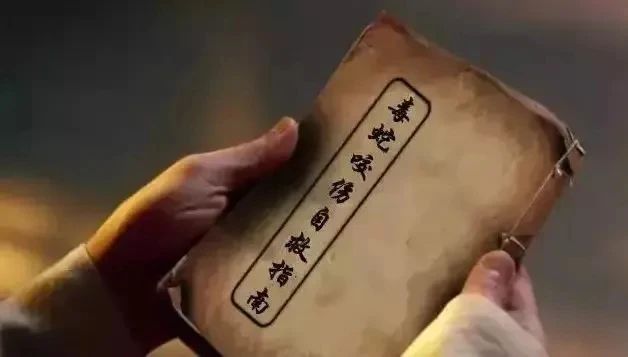 毒蛇咬伤自救指南